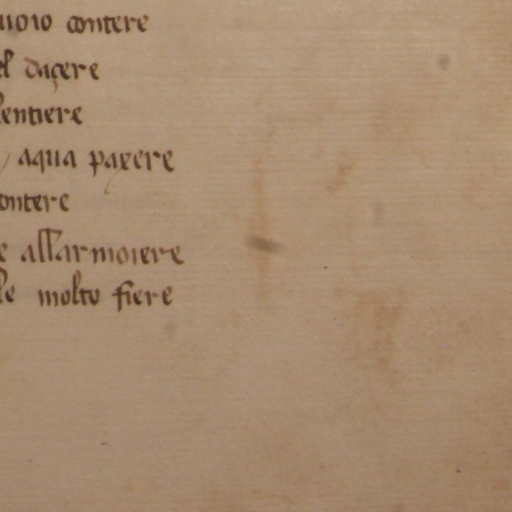 uoio contere
el daçere
entiere
aqua paxere
ontere
e allarmoiere
le molto fiere